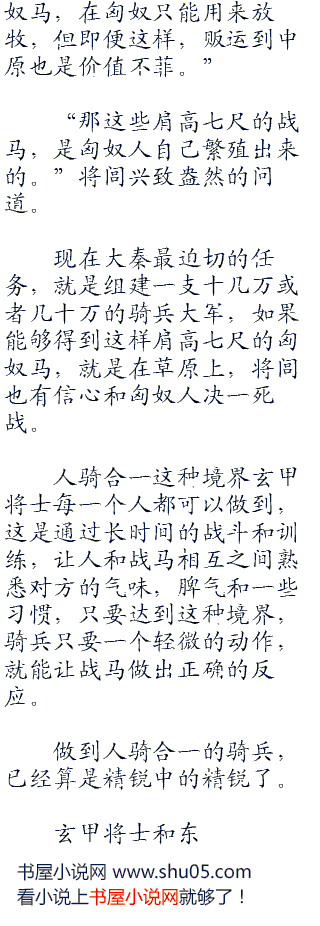 奴马，在匈奴只能用来放
牧，但即便这样，贩运到中
原也是价值不菲。”
“那这些肩高七尺的战
马，是匈奴人自己繁殖出来
的。”将闾兴致盎然的问
道。
现在大秦最迫切的任
务，就是组建一支十几万或
者几十万的骑兵大军，如果
能够得到这样肩高七尺的匈
奴马，就是在草原上，将闾
也有信心和匈奴人决一死
战。
人骑合一这种境界玄甲
将士每一个人都可以做到，
这是通过长时间的战斗和训
练，让人和战马相互之间熟
悉对方的气味，脾气和一些
习惯，只要达到这种境界，
骑兵只要一个轻微的动作，
就能让战马做出正确的反
应。
做到人骑合一的骑兵，
已经算是精锐中的精锐了。
玄甲将士和东
书屋小说网 www.shu05.com
看小说上书屋小说网就够了！